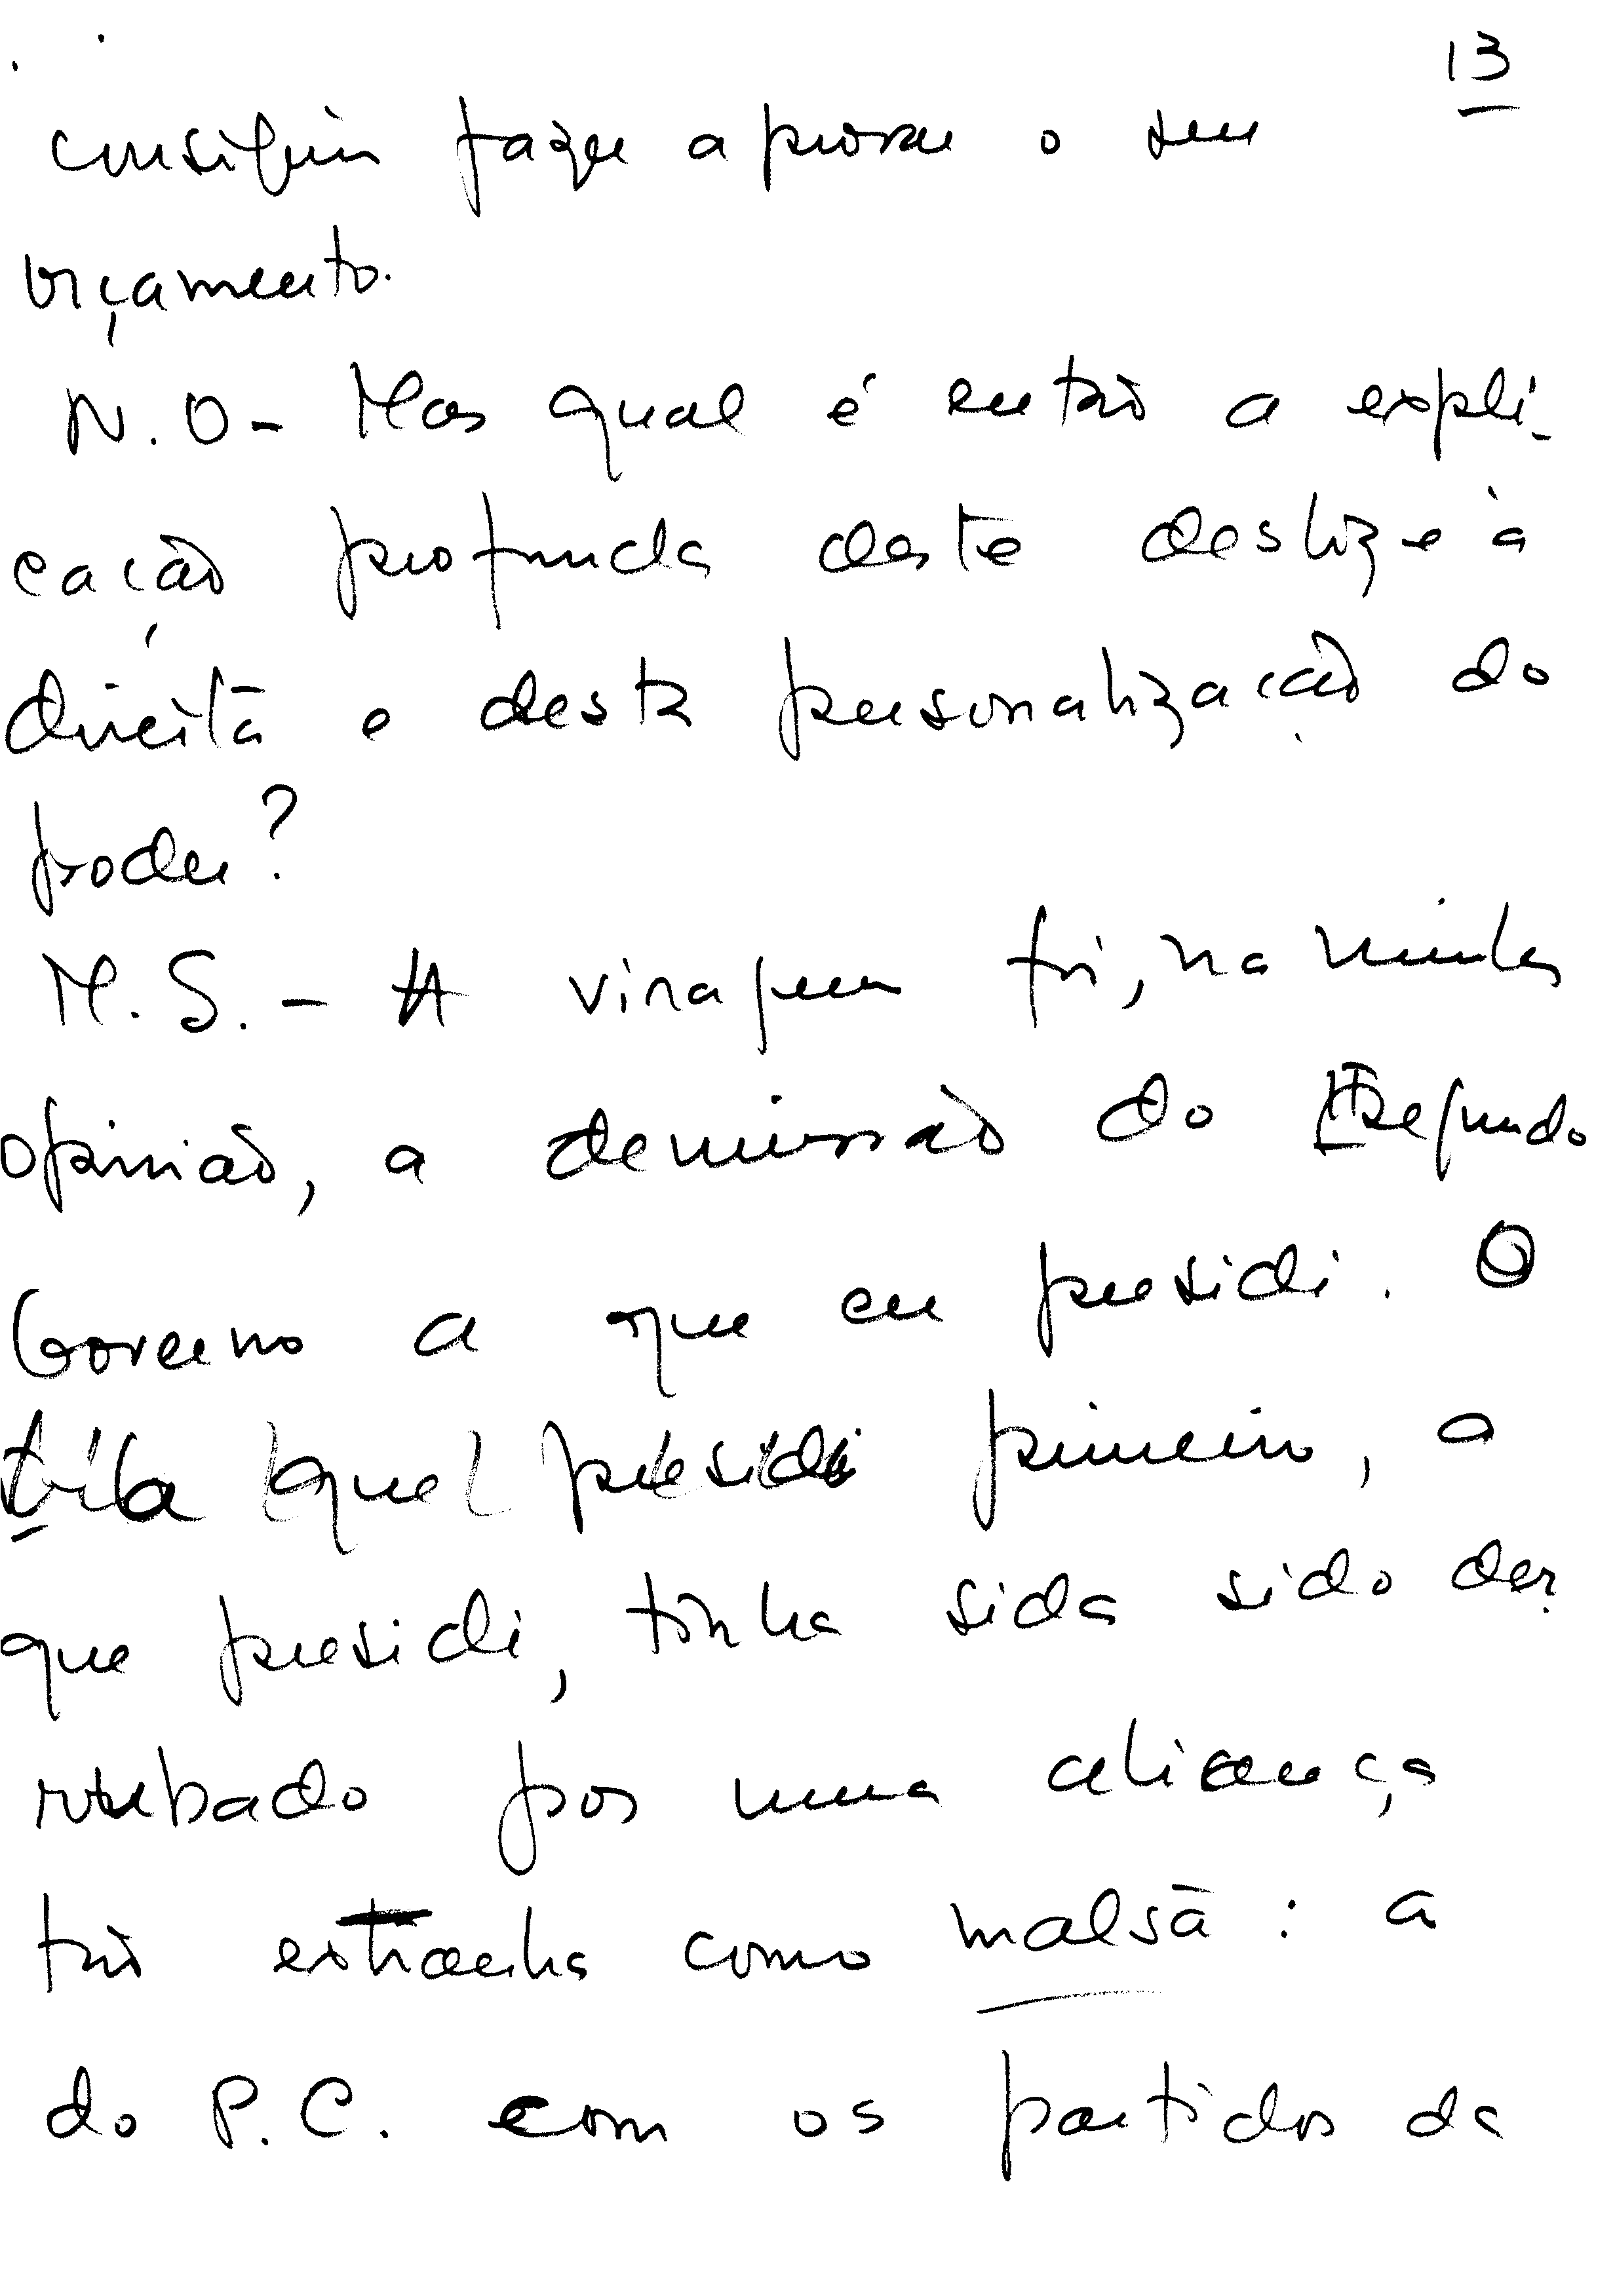 13
conseguiu fazer aprovar o seu
orçamento.
N.O- Mas qual é então a expli-
cação profunda deste deslize à
direita e desta personalização do
poder?
M.S. - A viragem foi, na minha
opinião, a demissão do II segundo
Governo a que eu presidi. O
que presidi primeiro, a
que presidi, tinha sida sido der-
rubado por uma aliança
tão estranha como malsã: a
do P.C. com os partidos da